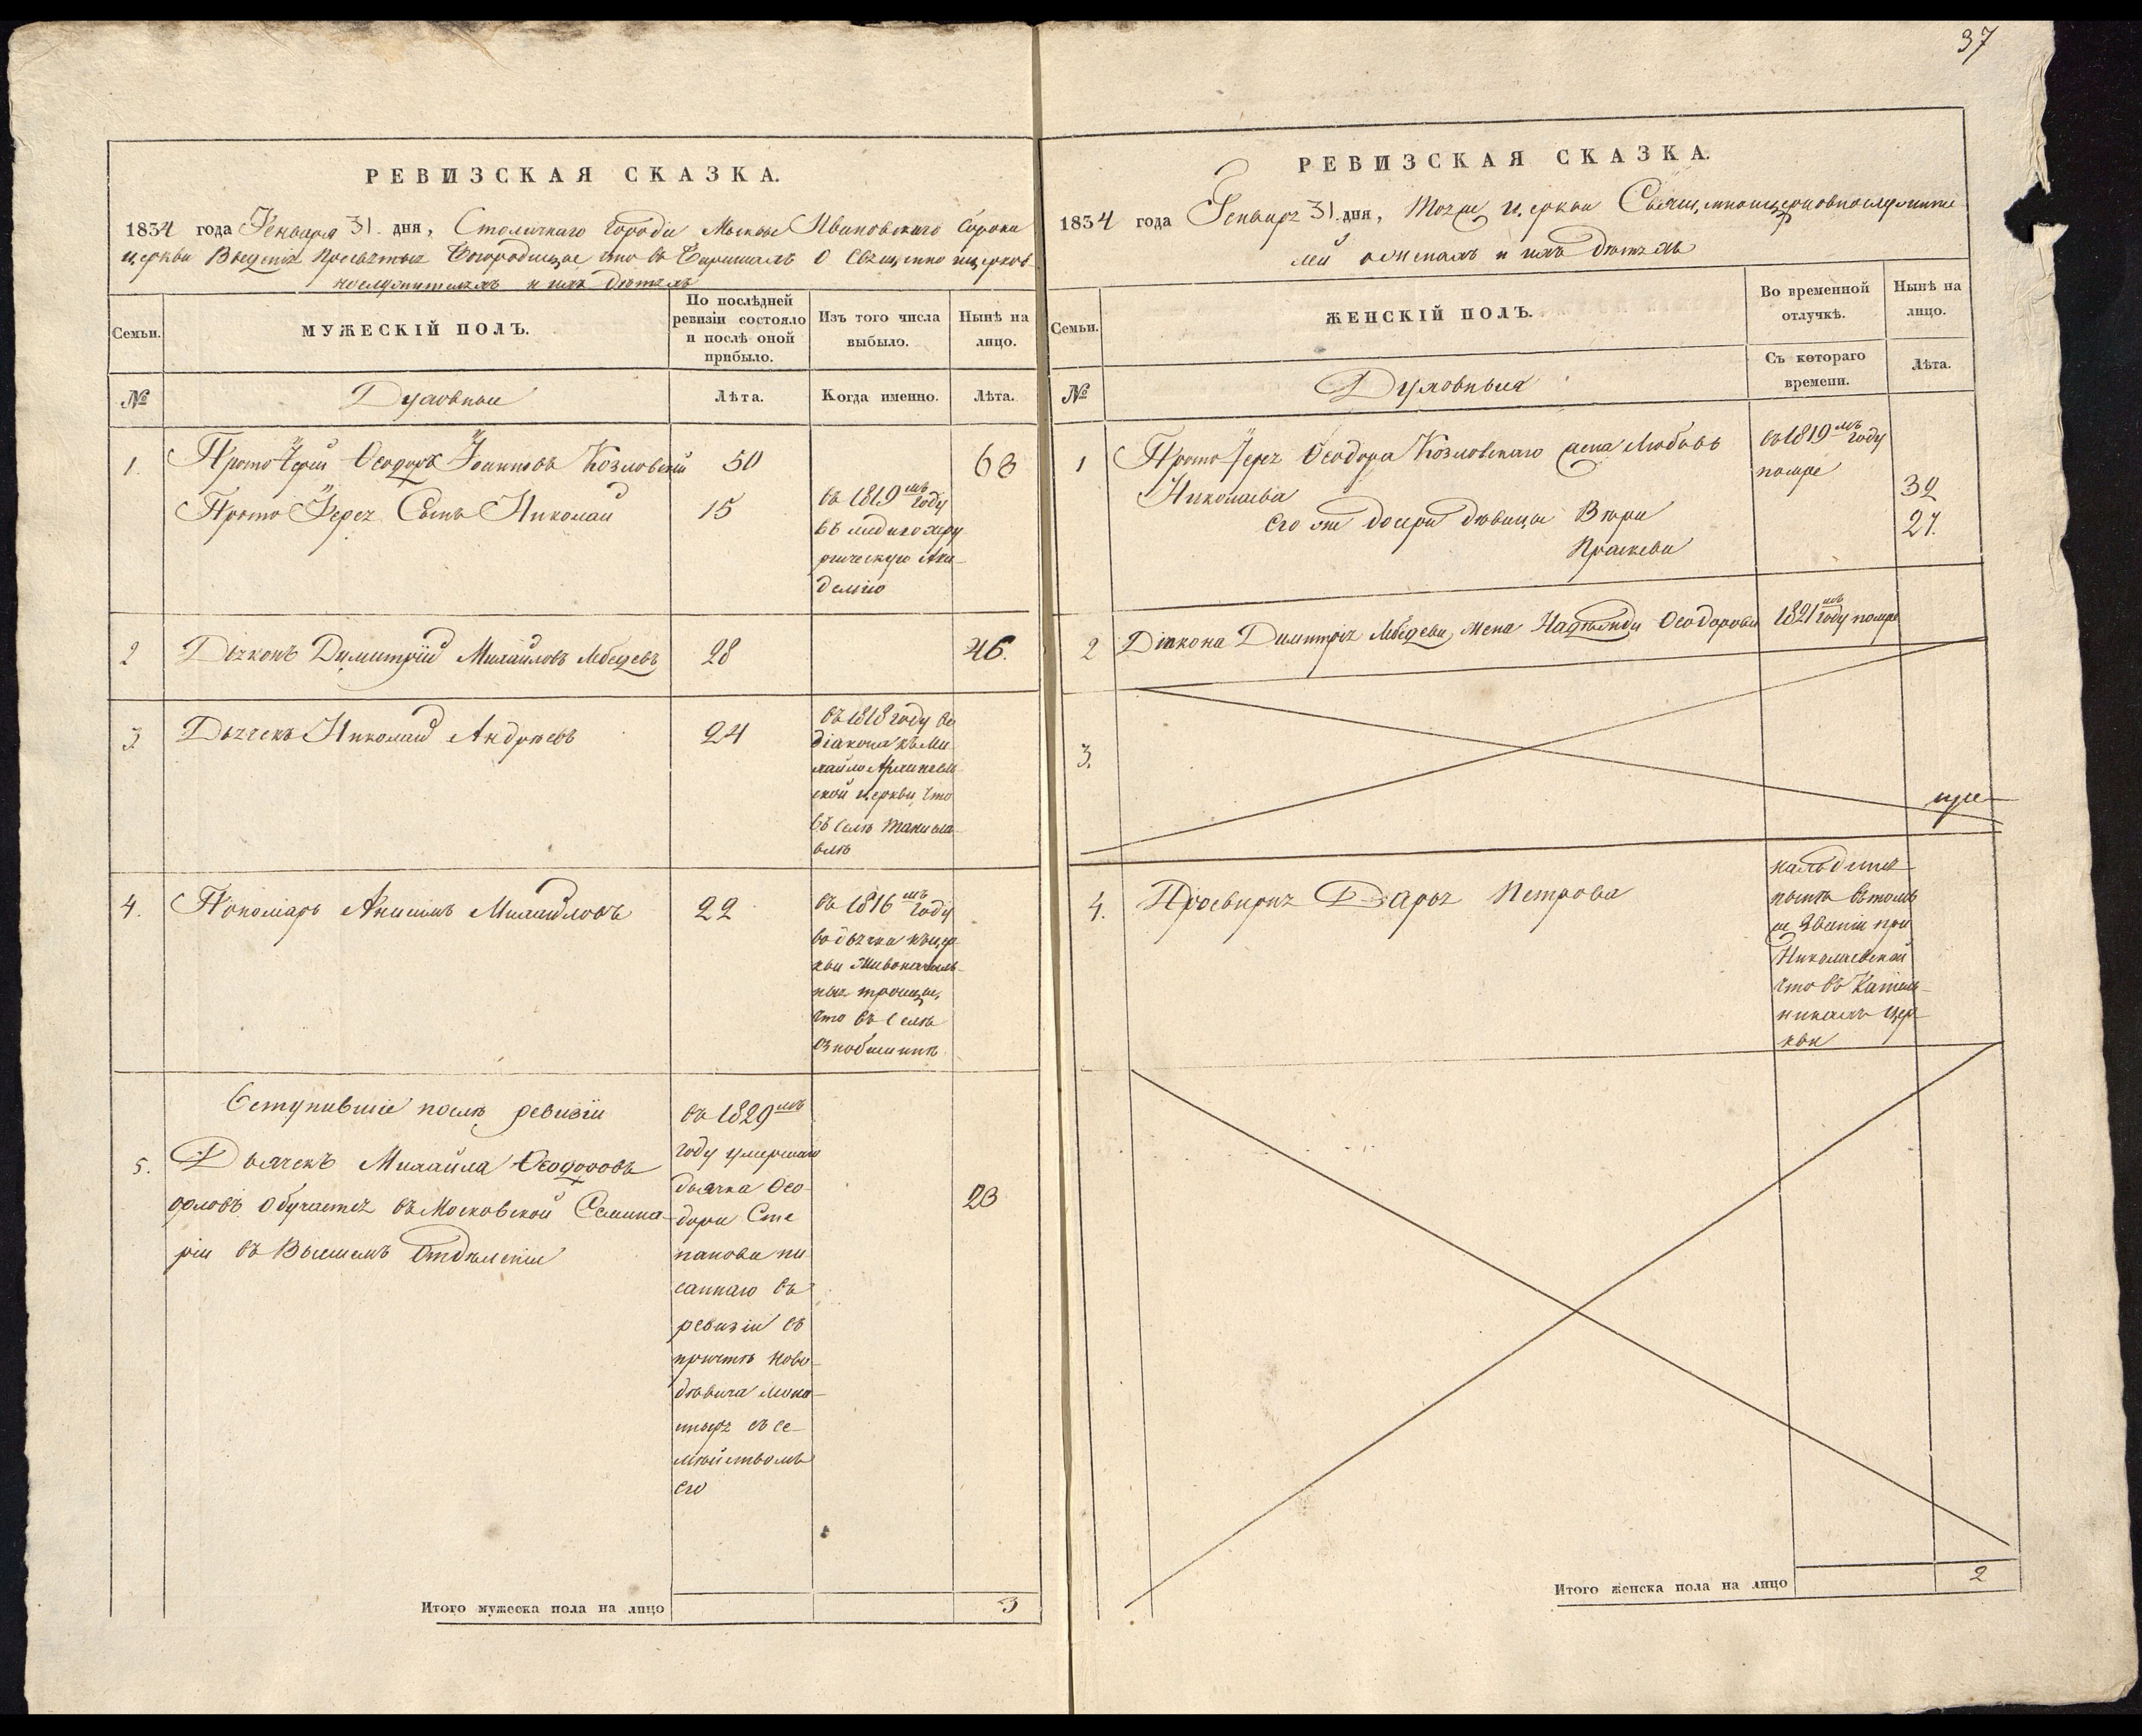 37
РЕВИЗСКАЯ СКАЗКА.
1834 года Генваря 31 дня, Столичнаго Города Москвы Ивановскаго Сорока
церкви Введенія Пресвятыя Богородицы что въ Барашахъ о Священно и церков-
нослужителяхъ и ихъ дѣтяхъ
Семьи.
МУЖЕСКІЙ ПОЛЪ.
По послѣдней ревизіи состояло и послѣ оной прибыло.
Изъ того числа выбыло.
Нынѣ на лицо.
№
Духовные
Лѣта.
Когда именно.
Лѣта.
1. Протоіерей Ѳеодоръ Іоанновъ Козловскій 50 68
Протоіерея Сынъ Николай 15
въ 1819мъ году
въ медикохиру
ргическую Ака-
демію
2 Діяконъ Димитрій Михайловъ Лебедевъ 28 46.
3 Дьячекъ Николай Андреевъ 24
въ 1818 году во
діакона къ Ми-
хайло Архангель-
ской церкви, что
въ селѣ
4. Пономарь Анисимъ Михайловъ 22
въ 1816мъ году
во дьячка къ цер-
кви Живоначаль-
ныя троицы,
что въ Селѣ
ознобишинѣ
Вступившіе послѣ ревизіи
5. Дьячекъ Михайла Ѳеодоровъ
орловъ обучается въ Московской Семина-
ріи въ Высшемъ Отдѣленіи
въ 1829мъ
году умершаго
дьячка Ѳео-
дора Сте
панова пи
саннаго въ
ревизіи въ
причтѣ Ново-
дѣвича мона-
стыря съ се-
мѣйствомъ
его
23
Итого мужеска пола на лицо 3
РЕВИЗСКАЯ СКАЗКА.
1834 года Генваря 31 дня, Тоже церкви Священноицерковнослужите-
лей женахъ и ихъ дѣтяхъ
Семьи.
ЖЕНСКІЙ ПОЛЪ.
Во временной отлучкѣ.
Нынѣ на лицо.
№
Духовныя
Съ котораго времени.
Лѣта.
1 Протоіерея Ѳеодора Козловскаго жена Любовь
Николаева
въ 1819мъ году
помре
Его же дочери дѣвицы Вѣра 32
Праскева 27.
2 Діакона Димитрія Лебедева, жена Надежда Ѳеодорова 1821мъ году помре
3.
4. Просвирня Дарья Петрова
находится
нынѣ въ томъ
же званіи при
Николаевской
что въ Катель-
никахъ цер
кви
Итого женска пола на лицо 2